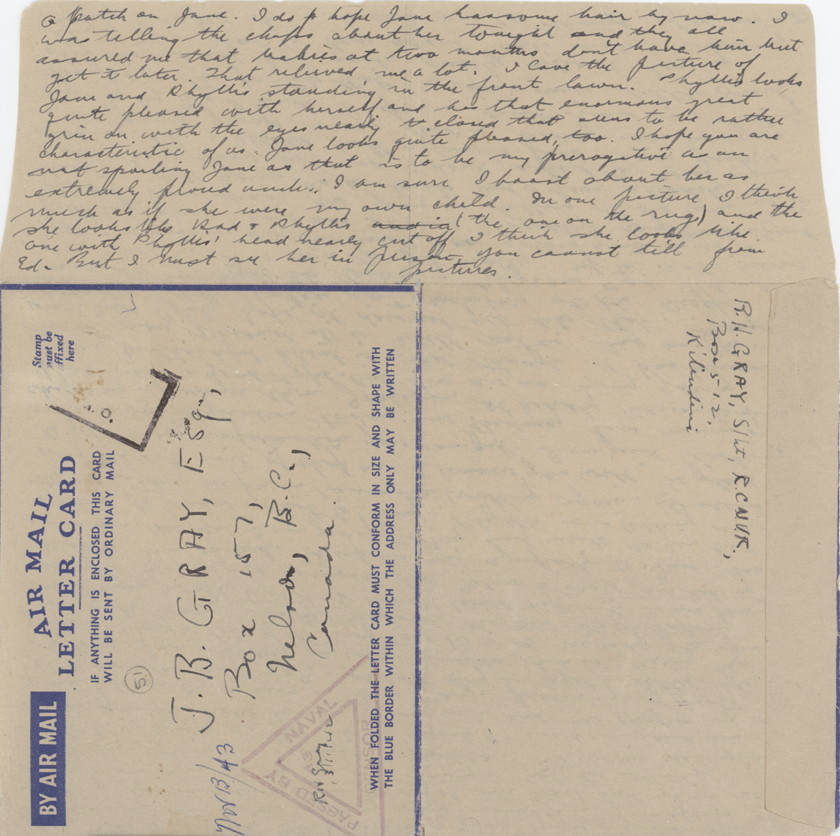 a patch on Jane. I do hope Jane has some hair by now. I
was telling the chaps about her tonight and they all
assured me that babies at two months don't have hair but
get it later. That relieved me a lot. I love the picture of
Jane and Phyllis standing in the front lawn. Phyllis looks
quite pleased with herself and has that enormous great
grin on with the eyes nearly closed that seems to be rather
characteristic of us. Jane looks quite pleased, too. I hope you are
not spoiling Jane as that is to be my prerogative as an
extremely proud uncle. I am sure I boast about her as
much as if she were my own child. In one picture I think
she looks like Dad & Phyllis (the one on the rug) and the
one with Phyllis' head nearly cut off I think she looks like
Ed. But I must see her in person, you cannot tell from
pictures.
Stamp
must be
ffixed
here
AIR MAIL
LETTER CARD
IF ANYTHING IS ENCLOSED THIS CARD
WILL BE SENT BY ORDINARY MAIL
BY AIR MAIL
51
J. B. GRAY, Esq.,
Box 157,
Nelson, B.C.,
Canada.
Nov 13/43
PASSED BY
NAVAL
WHEN FOLDED THE LETTER CARD MUST CONFORM IN SIZE AND SHAPE WITH
THE BLUE BORDER WITHIN WHICH THE ADDRESS ONLY MAY BE WRITTEN
R.H. GRAY, S/Lt, R.C.N.V.R.,
Box 512,
Kilindini